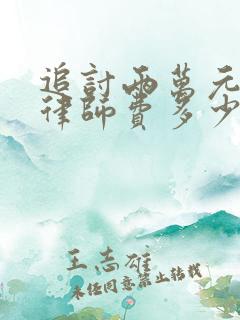 追討兩萬元
律師費多少
王志雄
未經同意禁止轉載